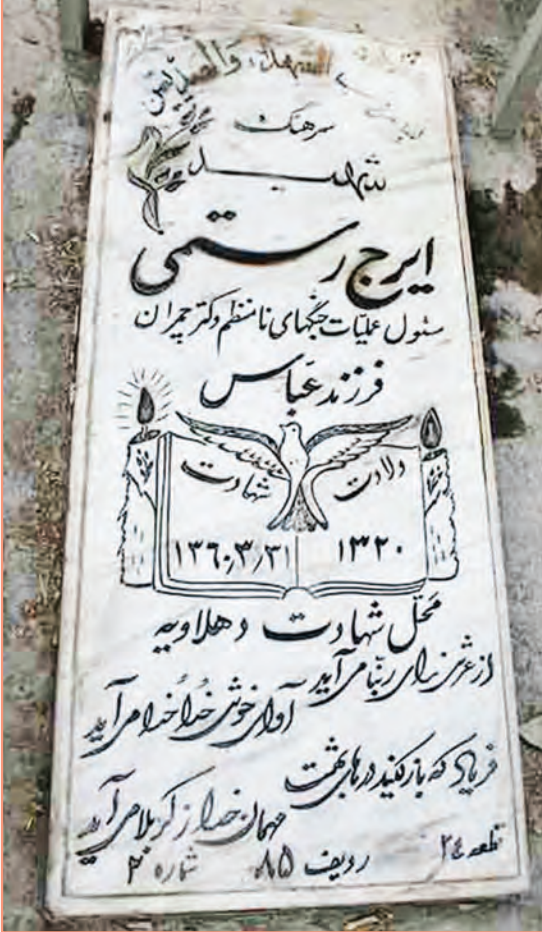 الشهداء والصدیقین
سرهنگ
شهید
ایرج رستمی
مسئول عملیات جنگهای نامنظم دکتر چمران
فرزند عباس
ولادت شهادت
۱۳۲۰ ۱۳۶۰/۳/۳۱
محل شهادت دهلاویه
از عرش ندای ربنا می آید
آوای خوش خدا خدا می آید
فریاد که باز کنید درهای بهشت
مهمان خدا ز کربلا می آید
قطعه ۲۴ ردیف ۸۵ شماره ۲۰